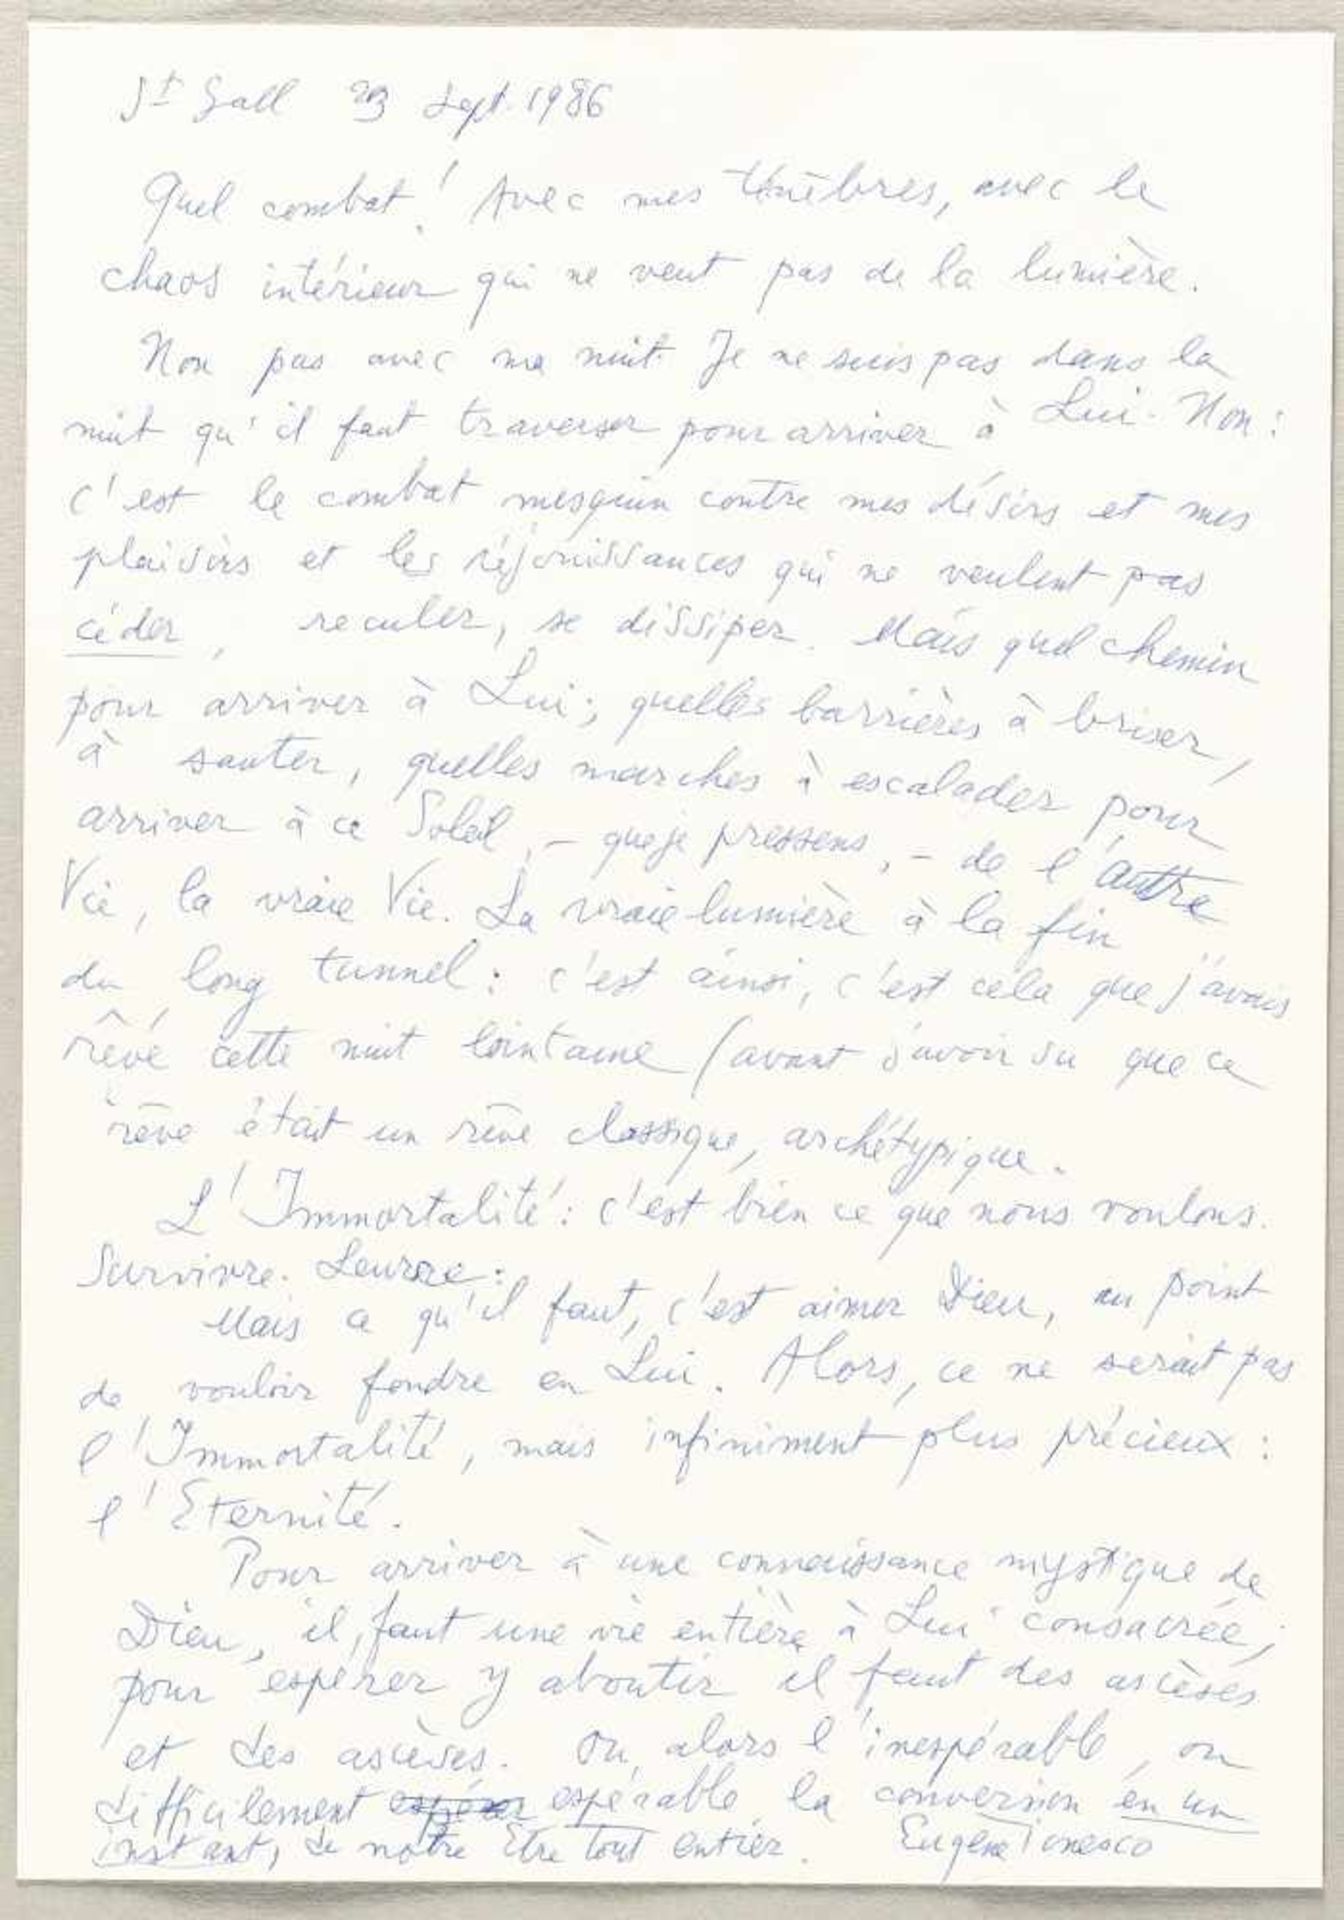 St Gall 23 Sept. 1986
Quel combat! Avec mes ténèbres, avec le
chaos intérieur qui ne veut pas de la lumière.
Non pas avec ma nuit. Je ne suis pas dans la
nuit qu'il faut traverser pour arriver à Lui. Non:
c'est le combat mesquin contre mes désirs et mes
plaisirs et les réjouissances qui ne veulent pas
céder, reculer, se dissiper. Mais quel chemin
pour arriver à Lui; quelles barrières à briser,
à sauter, quelles marches à escalader pour
arriver à ce Soleil, - que je pressens, - de l'autre
Vie, la vraie Vie. La vraie lumière à la fin
du long tunnel: c'est ainsi, c'est cela que j'avais
rêvé cette nuit lointaine (avant d'avoir su que ce
rêve était un rêve classique, archétypique.
L'Immortalité: c'est bien ce que nous voulons.
Survivre. Leurre:
Mais ce qu'il faut, c'est aimer Dieu, au point
de vouloir fondre en Lui. Alors, ce ne serait pas
l'Immortalité, mais infiniment plus précieux:
l'Eternité.
Pour arriver à une connaissance mystique de
Dieu, il faut une vie entière à Lui consacrée;
pour espérer y aboutir il faut des ascèses
et des ascèses. Ou alors l'inespérable, ou
difficilement espérable la conversion en un
instant, de notre Etre tout entier. Eugène Ionesco